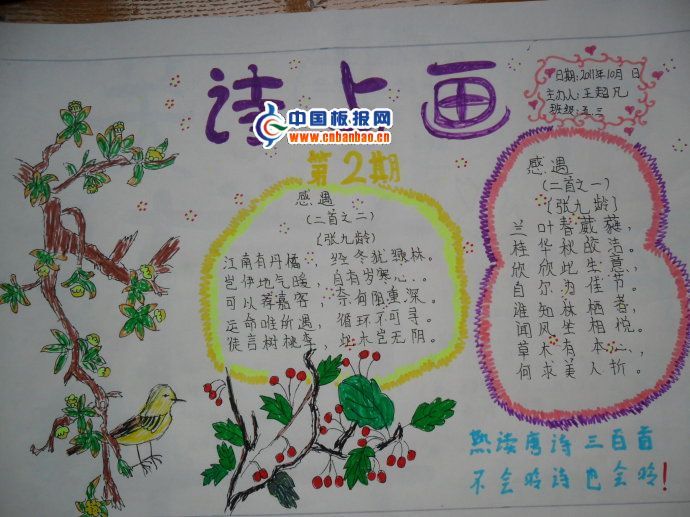 诗与画
中国板报网
www.cnbanbao.cn
第2期
日期:2011年10月 日
主办人:王超凡
班级:五三
感遇
(二首之二)
(张九龄)
江南有丹橘，经冬犹绿林。
岂伊地气暖，自有岁寒心。
可以荐嘉客 奈何阻重深。
运命唯所遇，循环不可寻。
徒言树桃李，此木岂无阴。
感遇
(二首之一)
(张九龄)
兰叶春葳蕤，
桂华秋皎洁。
欣欣此生意，
自尔为佳节。
谁知林栖者，
闻风坐相悦。
草木有本心，
何求美人折。
熟读唐诗三百首
不会吟诗也会吟！